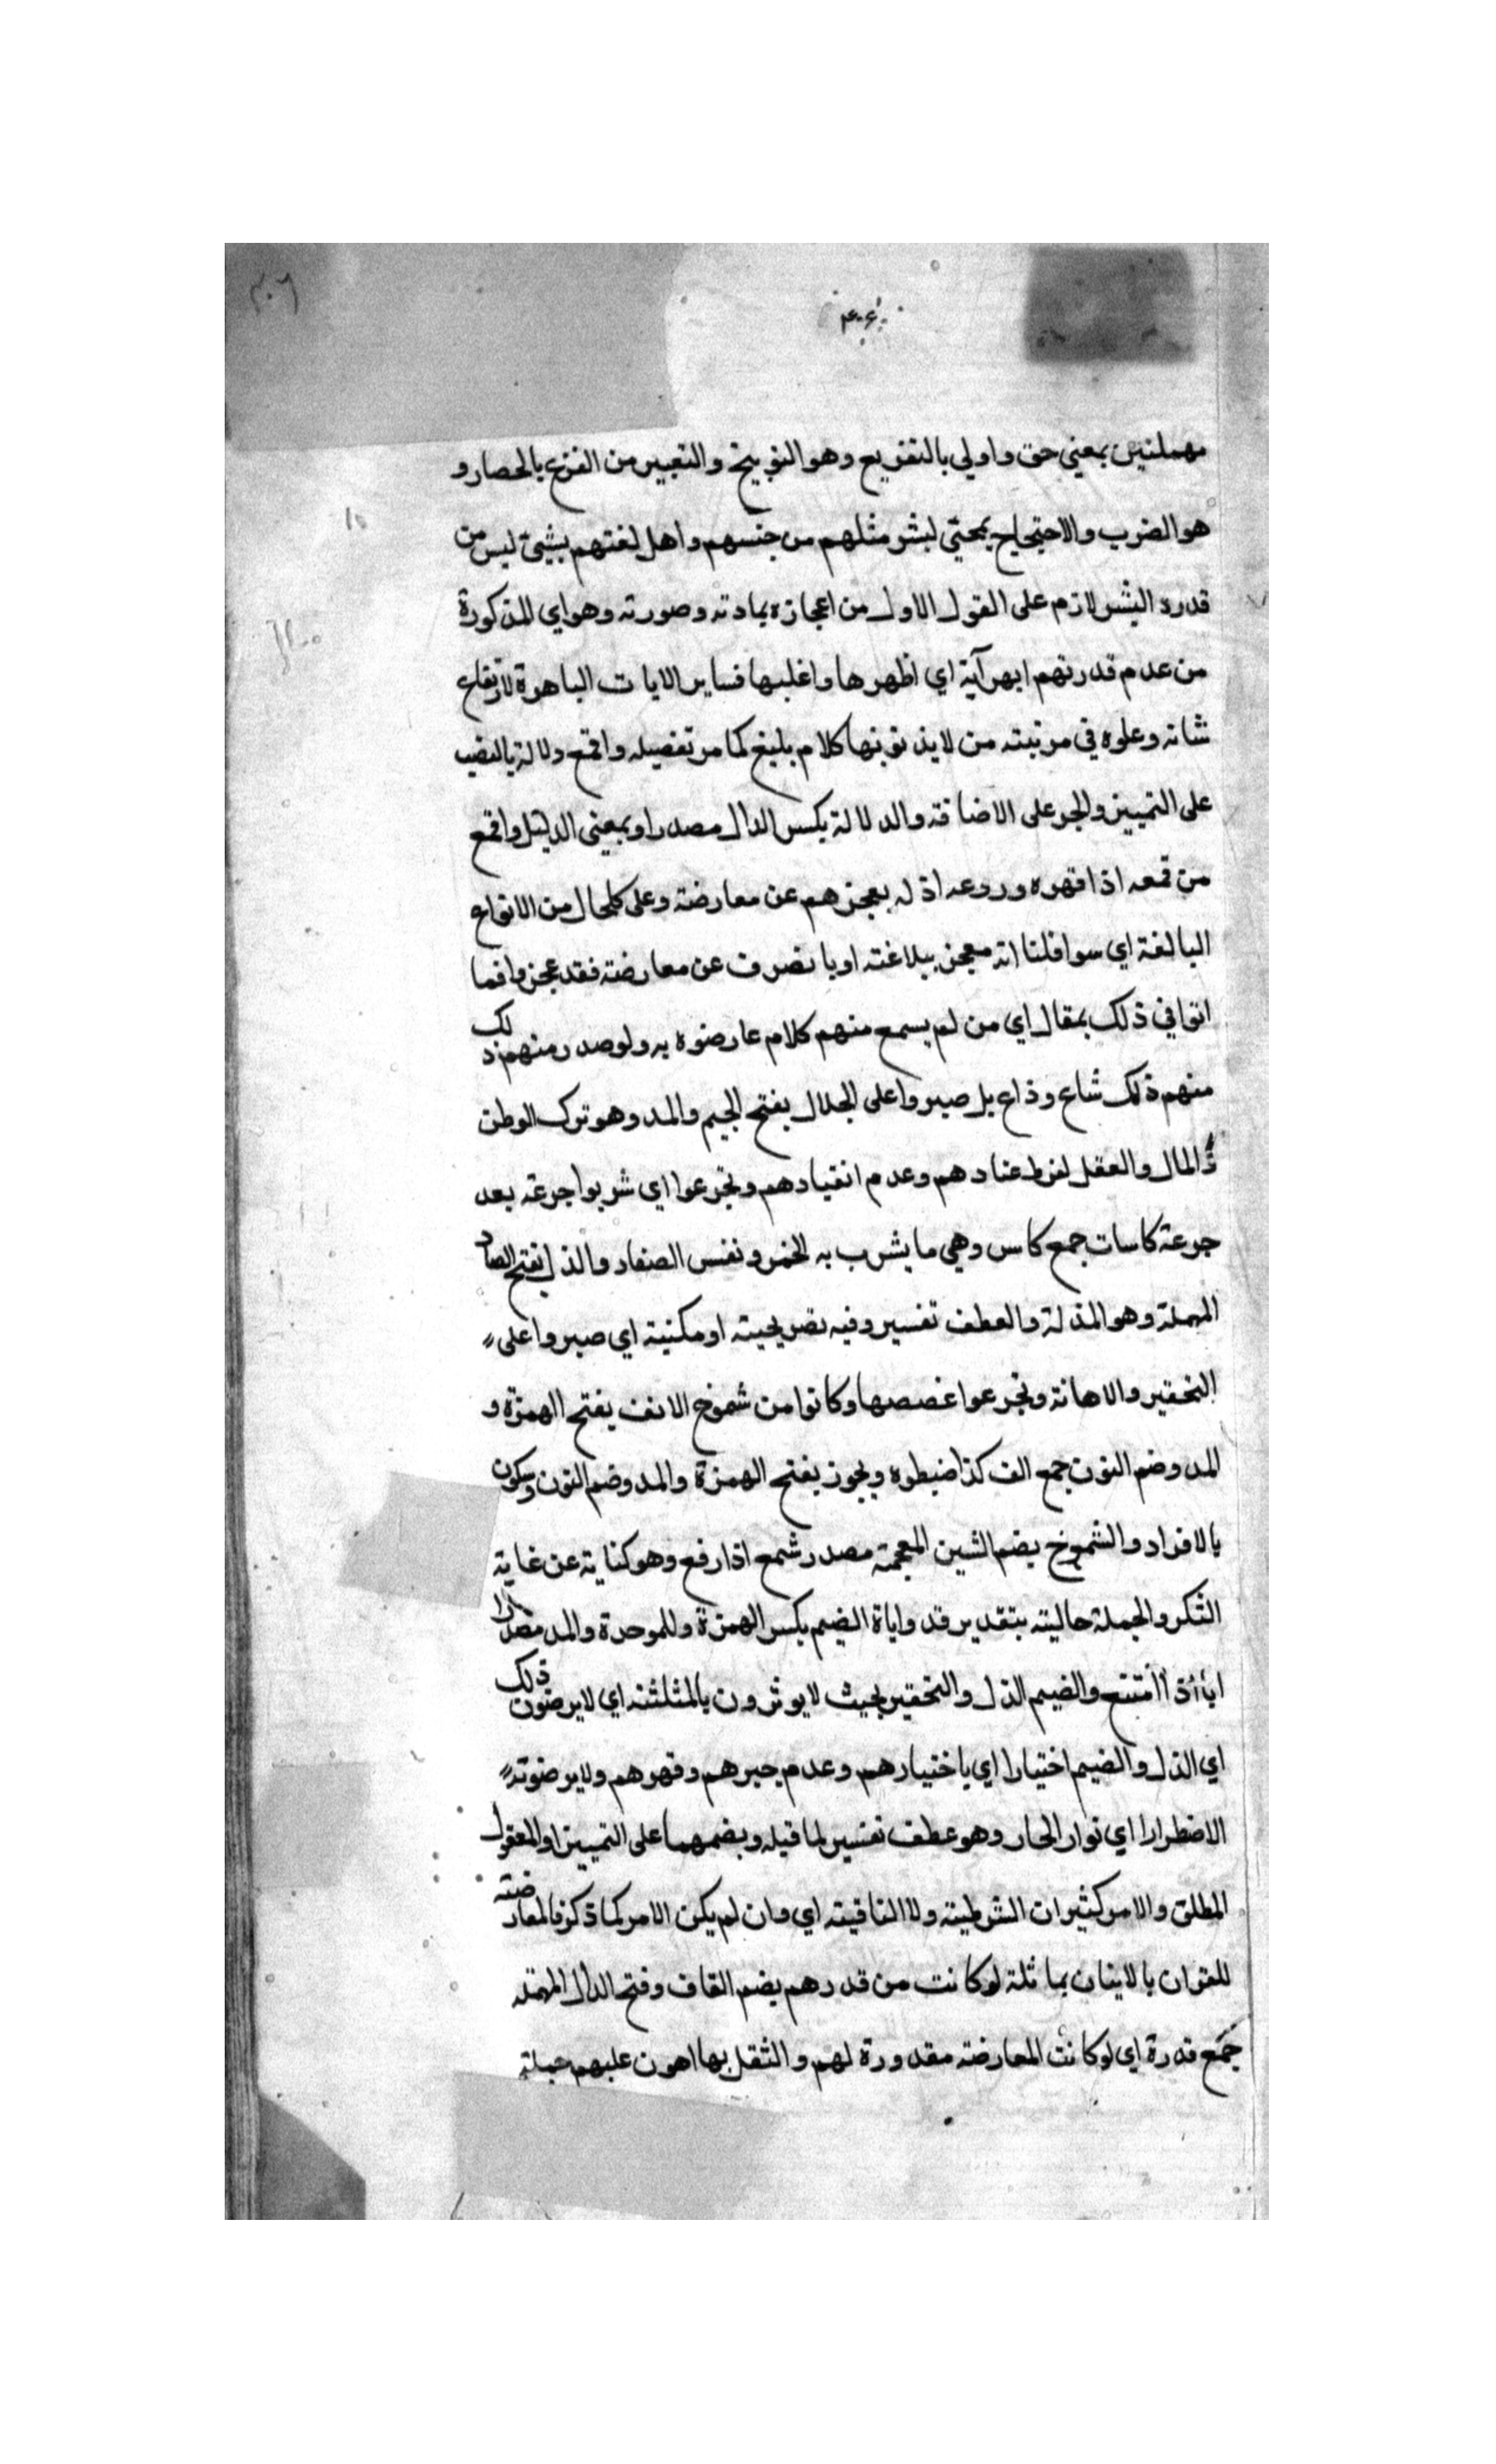 ٣٠٦
٣٠٦
مهملتين بمعني حق واولي بالتقريع وهو التوبيخ والتعيير من القرع بالحصار و
هو الضرب والاحتجاج بمجئ لبشر مثلهم من جنسهم واهل لغتهم بشيئ ليس من
قدرة البشر لازم على القول الاول من اعجازه بمادته وصورته وهو اي المذكورة
من عدم قدرتهم ابهر آية اي اظهرها واغلبها فساير الايات الباهرة لارتفاع
شانه وعلوه في مرتبته من لا يذنو بنها كلام بليغ كما مر تفصيله واقمع دلالة بالنصب
على التمييز والجر على الاضافة والدلالة بكسر الدال مصدر او بمعني الدليل واقمع
من قمعه اذا قهره وروعه اذ له بعجزهم عن معارضته وعلى كلحال من الانواع
البالغة اي سوا قلنا انه معجز ببلاغته او بالصرف عن معارضته فقد عجزوا فما
اتوا في ذلك بمقال اي من لم يسمع منهم كلام عارضوه به ولو صدر منهم ذلك
منهم ذلك شاع وذاع بل صبروا على الجلال بفتح الجيم والمد وهو ترك الوطن
والمال والعقل لفرط عنادهم وعدم انقيادهم وتجرعوا اي شربوا جرعة بعد
جرعة كاسات جمع كاس وهي ما يشرب به الخمر ونفس الصغار والذل بفتح الصاد
المهملة وهو المذلة والعطف تفسير وفيه تصريحية او مكنية اي صبروا على
التحقير والاهانة وتجرعوا غصصها وكانوا من شموخ الانف بفتح الهمزة و
المد وضم النون جمع الف كذا ضبطوه ويجوز بفتح الهمزة والمد وضم النون وسكون
بالافراد والشموخ بضم الشين المعجمة مصدر شمع اذا رفع وهو كناية عن غاية
التكر والجملة حالية بتقدير قد واباة الضيم بكسر الهمزة وللموحدة والمد مصدرا
ابا اذا امتنع والضيم الذل والتحقير بحيث لا يوثرون بالمثلثة اي لا يرضون ذلك
اي الذل والضيم اختيارا اي باختيارهم وعدم جبرهم وقهرهم ولا يرضونه
الاضطرارا اي نوار الحار وهو عطف تفسير لما قبله وبضمهما على التمييز او المعقول
المطلق والامر كثير ان الشرطية ولا النافية اي وان لم يكن الامر كما ذكر فالمعارضة
للقران بالاينان بماثلة لو كانت من قدرهم بضم القاف وفتح الدال المهملة
جمع قدرة اي لو كانت المعارضة مقدورة لهم والثقل بها اهون عليهم جملة